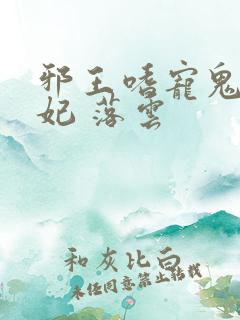 邪王嗜寵鬼
妃 落雲
和灰比白
未任同意禁止转载